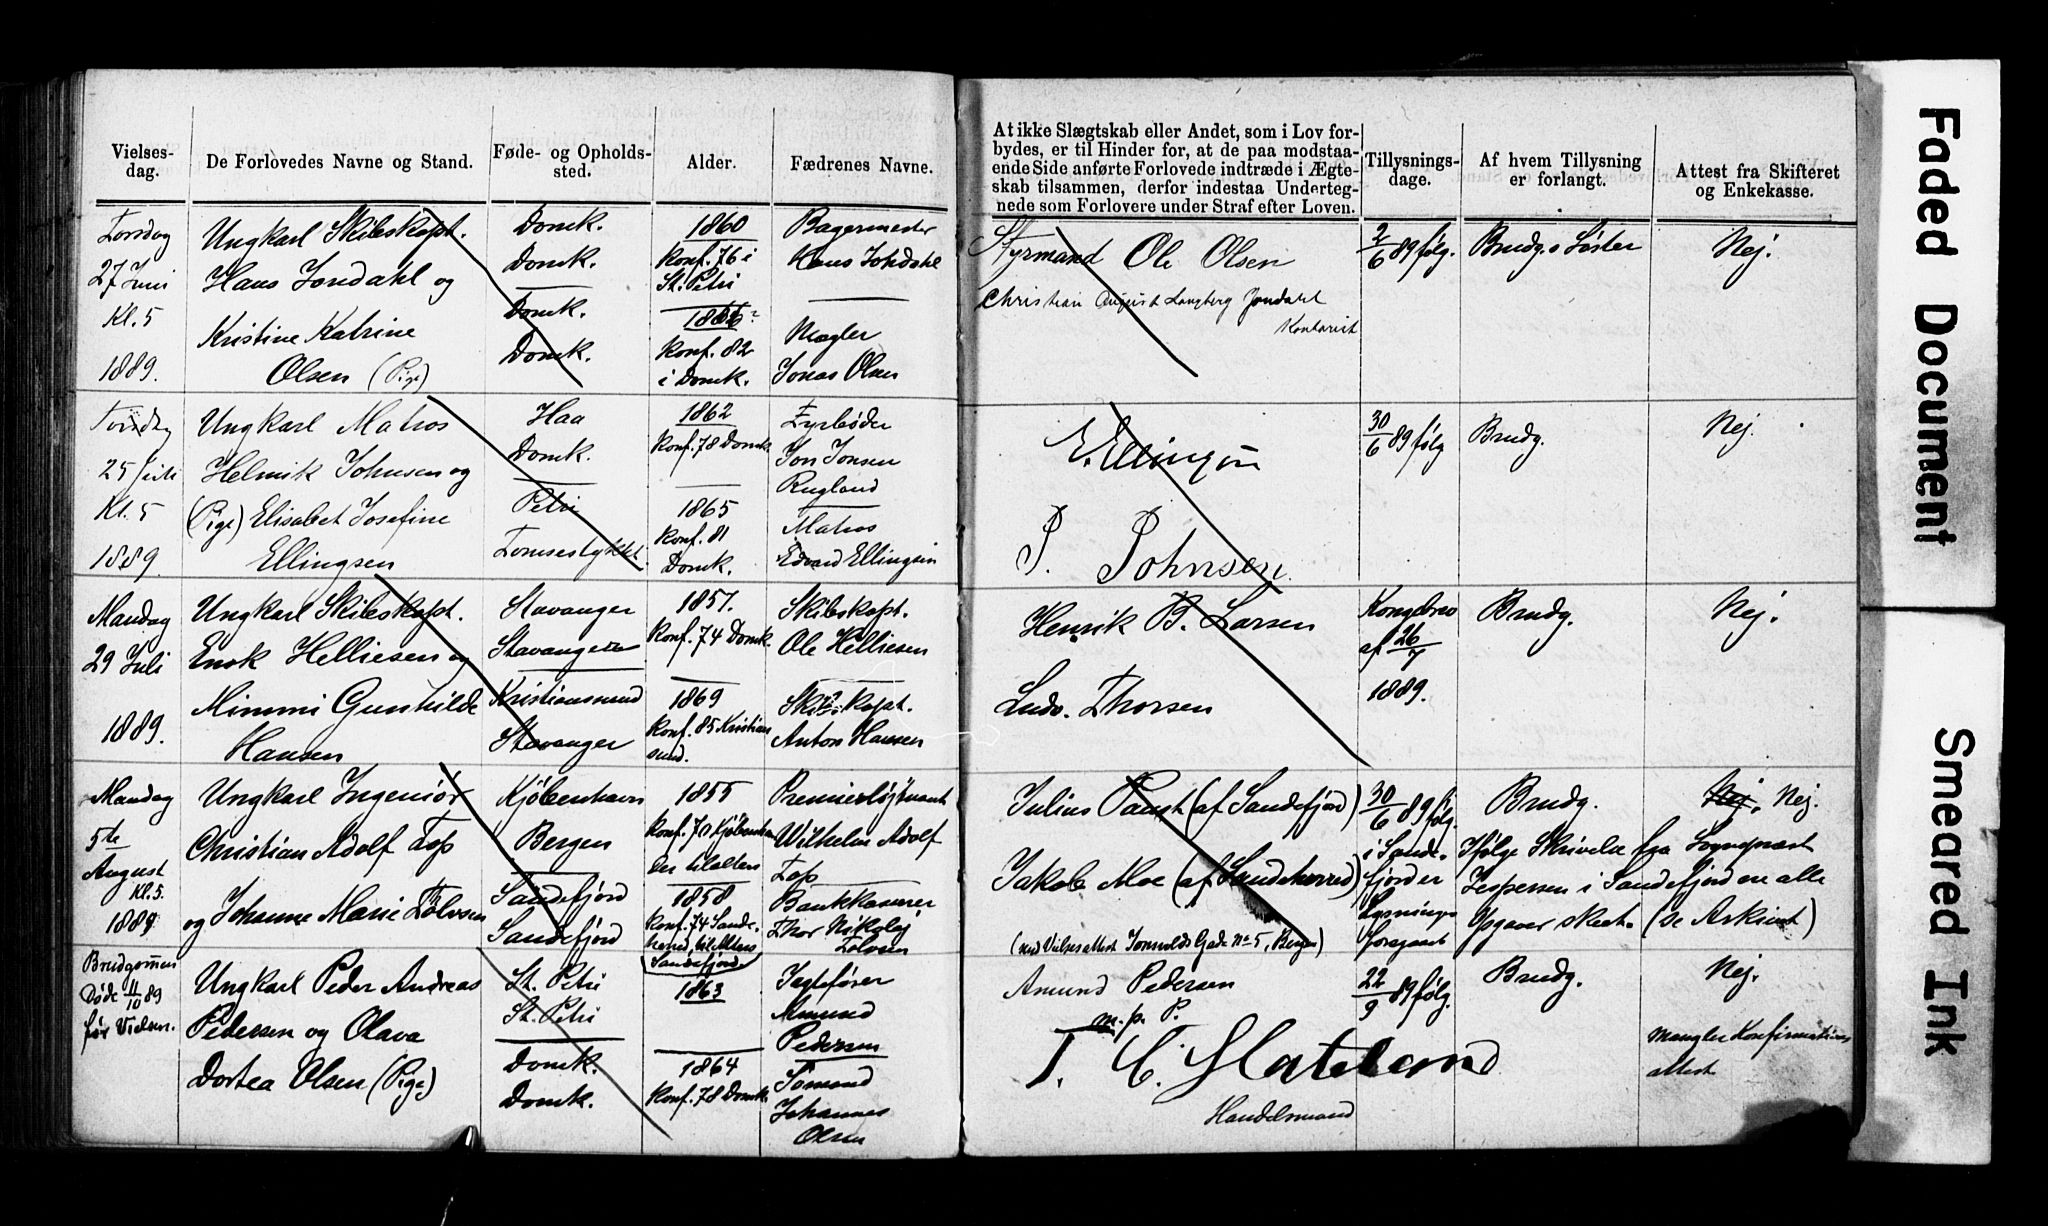 Vielses-
dag.
De Forlovedes Navne og Stand.
Føde- og Opholds-
sted.
Alder.
Fædrenes Navne.
At ikke Slægtskab eller Andet, som i Lov for-
bydes, er til Hinder for, at de paa modstaa-
ende Side anførte Forlovede indtræde i Ægte-
skab tilsammen, derfor indestaa Underteg-
nede som Forlovere under Straf efter Loven.
Tillysnings-
dage.
Af hvem Tillysning
er forlangt.
Attest fra Skifteret
og Enkekasse.
Torsdag
27 Juni
Kl. 5
1889.
Ungkarl Skibskapt.
Hans Jondahl og
Kristine Katrine
Olsen (Pige)
Domk.
Domk.
Domk.
Domk.
1860
Konf. 76 i
St. Petri
Konf. 82
i Domk.
Bagermester
Hans Jondahl
Mægler
Jonas Olsen
Styrmand Ole Olsen
Christian August Langberg Jondahl
Kontorist
2/6 89 følg.
Brudg.s Søster
Nej.
25 Juli
Kl. 5
1889.
Ungkarl Matros
Helmik Johnsen og
(Pige) Elisabet Josefine
Ellingsen
Haa
Domk.
Petri
1862
Konf. 78 Domk.
1865
Konf. 81
Domk.
Fyrbøder
Jon Jonsen
Rugland
Matros
Edvard Ellingsen
E. Ellingsen
P. Johnsen
30/6 89 følg
Brudg.
Nej.
Mandag
29 Juli
1889.
Ungkarl Skibskapt.
Enok Helliesen og
Mimmi Gunhilde
Hansen
Stavanger
Stavanger
Kristiansund
Stavanger
1857.
Konf. 74 Domk.
1869
Konf. 85 Kristian
sund.
Skibskapt.
Ole Helliesen
Skibskapt.
Anton Hansen
Henrik B. Larsen
Ludv. Thorsen
Kongebrev
af 26/7
1889.
Brudg.
Nej.
Mandag
5te
August
Kl. 5.
1889
Ungkarl Ingeniør
Christian Adolf Top
og Johanne Marie Tolvsen
Kjøbenhavn
Bergen
Sandefjord
Sandefjord
1855
Konf. 70 Kjøbenhavn
Der til alters
1858
Konf. 74 Sande-
herred, til Alters
Sandefjord
Premierløjtnant
Wilhelm Adolf
Top
Bankkaserer
Thor Nikolaj
Tolvsen
Julius Paust (af Sandefjord)
Jakob Moe (af Sandeherred)
30/6 89 følg.
i Sande-
fjord er
Lysningen
foregaaet
Brudg.
Ifølge Skrivelse fra Sogneprest
Jespersen i Sandefjord ere alle
Opgaver skeet. (se Arkivet)
Nej. Nej.
Brudgommen
Døde 11/10 89
før Vielsen.
Ungkarl Peder Andreas
Pedersen og Olava
Dortea Olsen (Pige)
St. Petri
St. Petri
Domk.
Domk.
1863
1864
Konf. 78 Domk.
Jagtefører
Amund
Pedersen
Sømand
Johannes
Olsen
Amund Pedersen
m. p. P.
Handelsmand
22/9 89 følg.
Brudg.
Nej.
Mangler Konfirmations
attest
Faded Document
Smeared Ink